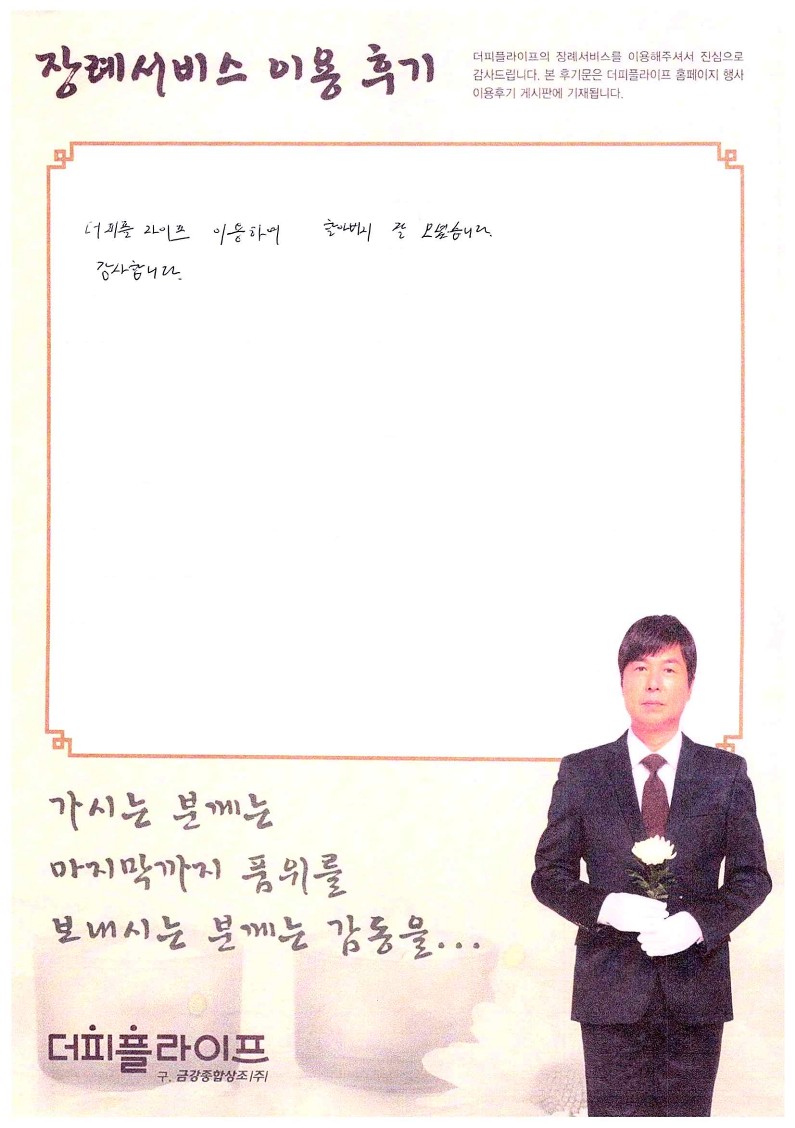 장례서비스 이용 후기
더피플라이프의 장례서비스를 이용해주셔서 진심으로
감사드립니다. 본 후기문은 더피플라이프 홈페이지 행사
이용후기 게시판에 기재됩니다.
더피플 라이프 이용하여 할아버지 잘 모셨습니다.
감사합니다.
가시는 분께는
마지막까지 품위를
보내시는 분께는 감동을...
더피플라이프
구. 금강종합상조(주)